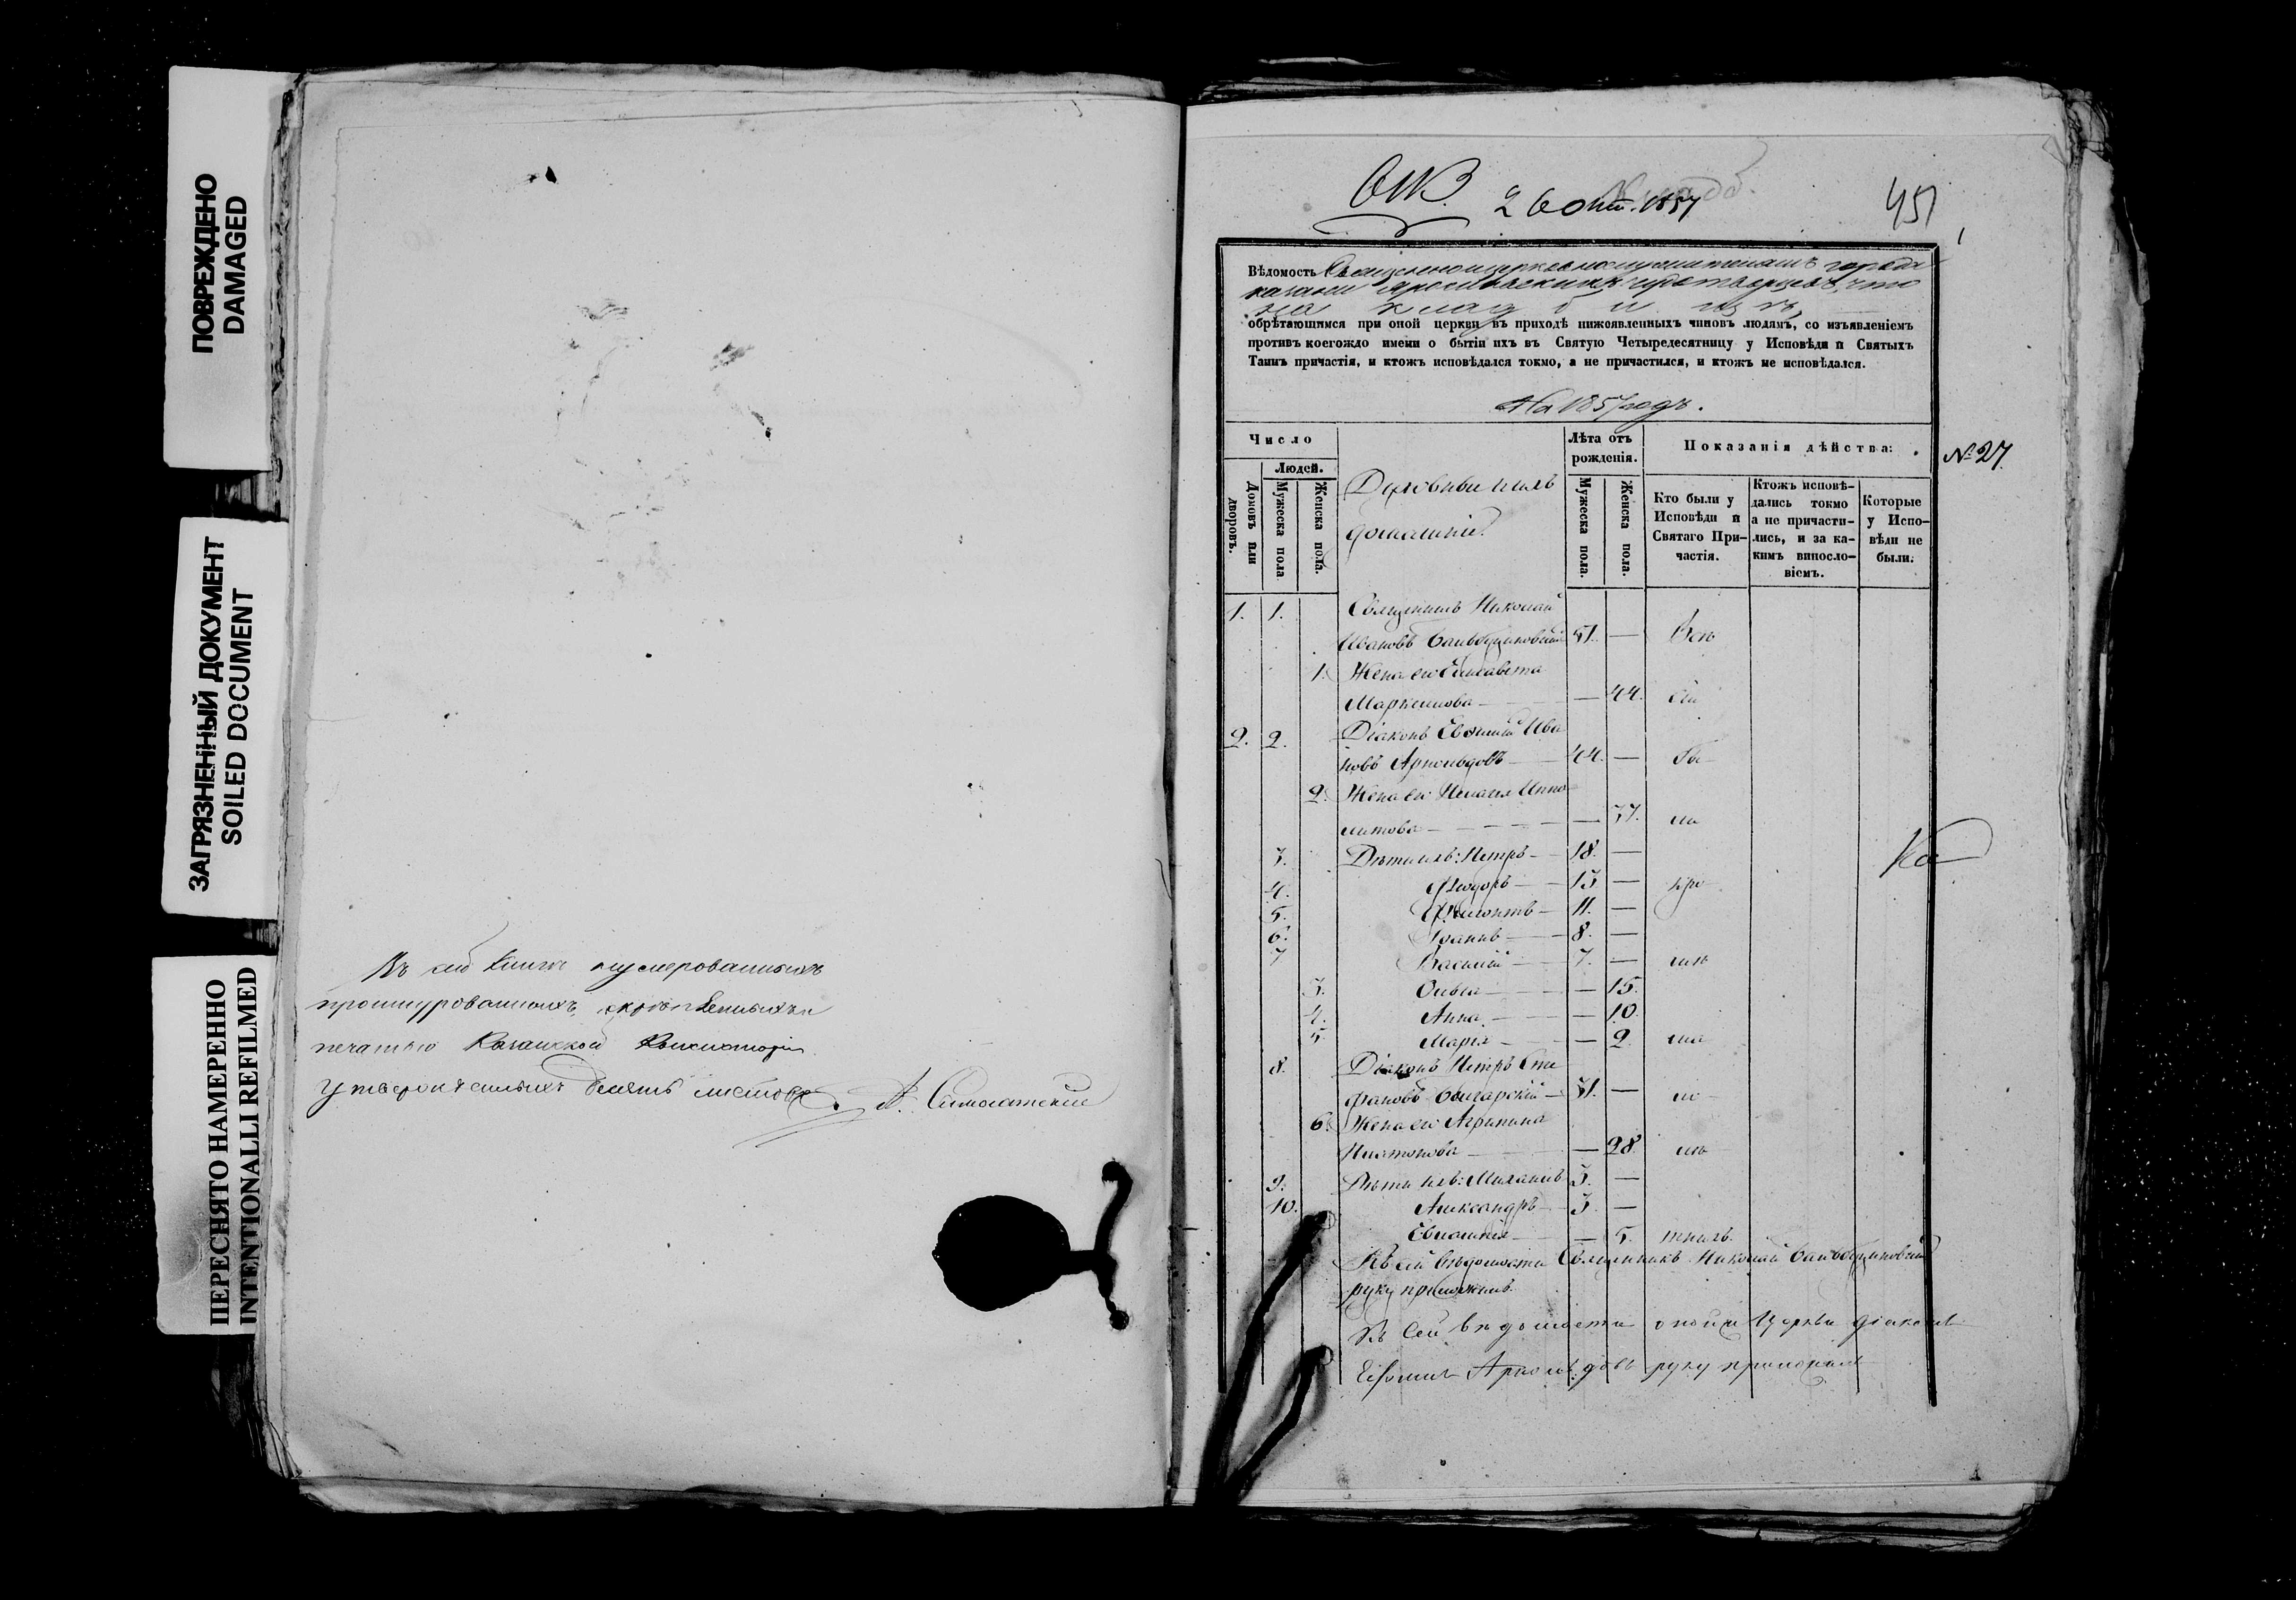 ПОВРЕЖДЕНО
DAMAGED
ЗАГРЯЗНЕННЫЙ ДОКУМЕНТ
SOILED DOCUMENT
ПЕРЕСНЯТО НАМЕРЕННО
INTENTIONALLI REFILMED
Въ сей книгѣ нумерованныхъ
прошнурованныхъ, скрѣпленныхъ и
печатью Казанской Консисторіи
утвержденныхъ девять листовъ.
26 1857
451
Вѣдомость Священноцерковнослужителямъ города
Казани Ярославскихъ Чудотворцевъ, что
на кладбищѣ,
обрѣтающимся при оной церкви въ приходѣ нижоявленныхъ чиновъ людямъ, со изъявленіемъ
противъ коегождо имени о бытіи ихъ въ Святую Четыредесятницу у Исповѣди и Святыхъ
Таинъ причастія, и ктожъ исповѣдался токмо, а не причастился, и ктожъ не исповѣдался.
На 1857 годъ.
№ 27.
Число
Людей.
Домовъ или дворовъ.
Мужеска пола
Женска пола.
Духовные и ихъ
домашніе.
Лѣта отъ рожденія.
Мужеска пола.
Женска пола.
Показанія дѣйства:
Кто были у Исповѣди и Святаго При-частія.
Ктожъ исповѣ-дались токмо а не причасти-лись, и за ка-кимъ винослo-віемъ.
Которые у Испо-вѣди не были.
1. 1. Священникъ Николай
Ивановъ 51. — Всѣ
1. Жена его Елисавета
Маркеллова — — 44. сіи
2. 2. Діаконъ Евѳимій Ива
новъ Арнольдовъ — 44. — бы
2. Жена его Пелагея Иппо
литова — — 37. ли
3. Дѣти ихъ: Петръ — 18. —
4. Ѳеодоръ — 13 — при
5. — 11. —
6. Іоаннъ — 8. —
7 Василій — 7. —
3. Ольга — — 15.
4. Анна — — 10.
5. Марія — — 2.
8. Діаконъ Петръ Сте
фановъ Болгарскій — 31. —
6. Жена его Агрипина
Платонова — — 28
9. Дѣти ихъ: Михаилъ 5. —
10. Александръ — 3. —
— 5.
Ка
Къ сей вѣдомости Священникъ Николай
руку приложилъ.
Къ сей вѣдомости оной же Церкви діаконъ
Евѳимій Арнольдовъ руку приложилъ